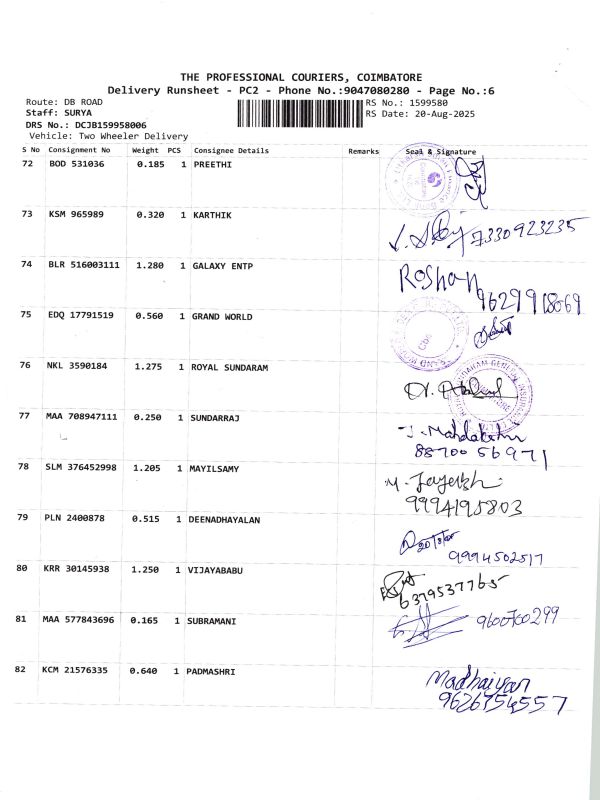 THE PROFESSIONAL COURIERS, COIMBATORE
Delivery Runsheet - PC2 - Phone No.:9047080280 - Page No.:6
Route: DB ROAD
RS No.: 1599580
Staff: SURYA
RS Date: 20-Aug-2025
DRS No.: DCJB159958006
Vehicle: Two Wheeler Delivery
S No Consignment No Weight PCS Consignee Details Remarks Seal & Signature
72 BOD 531036 0.185 1 PREETHI
73 KSM 965989 0.320 1 KARTHIK
7330923235
74 BLR 516003111 1.280 1 GALAXY ENTP
Roshan
75 EDQ 17791519 0.560 1 GRAND WORLD
76 NKL 3590184 1.275 1 ROYAL SUNDARAM
77 MAA 708947111 0.250 1 SUNDARRAJ
88700 56971
78 SLM 376452998 1.205 1 MAYILSAMY
9994195803
79 PLN 2400878 0.515 1 DEENADHAYALAN
9994502517
80 KRR 30145938 1.250 1 VIJAYABABU
6379537765
81 MAA 577843696 0.165 1 SUBRAMANI
9600700299
82 KCM 21576335 0.640 1 PADMASHRI
Madhaiyan
9626754557